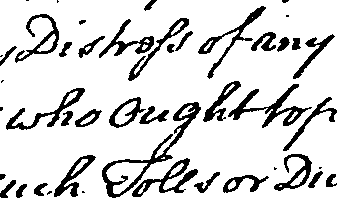 y Distress of any
who Ought to p
uch Tolls or Du